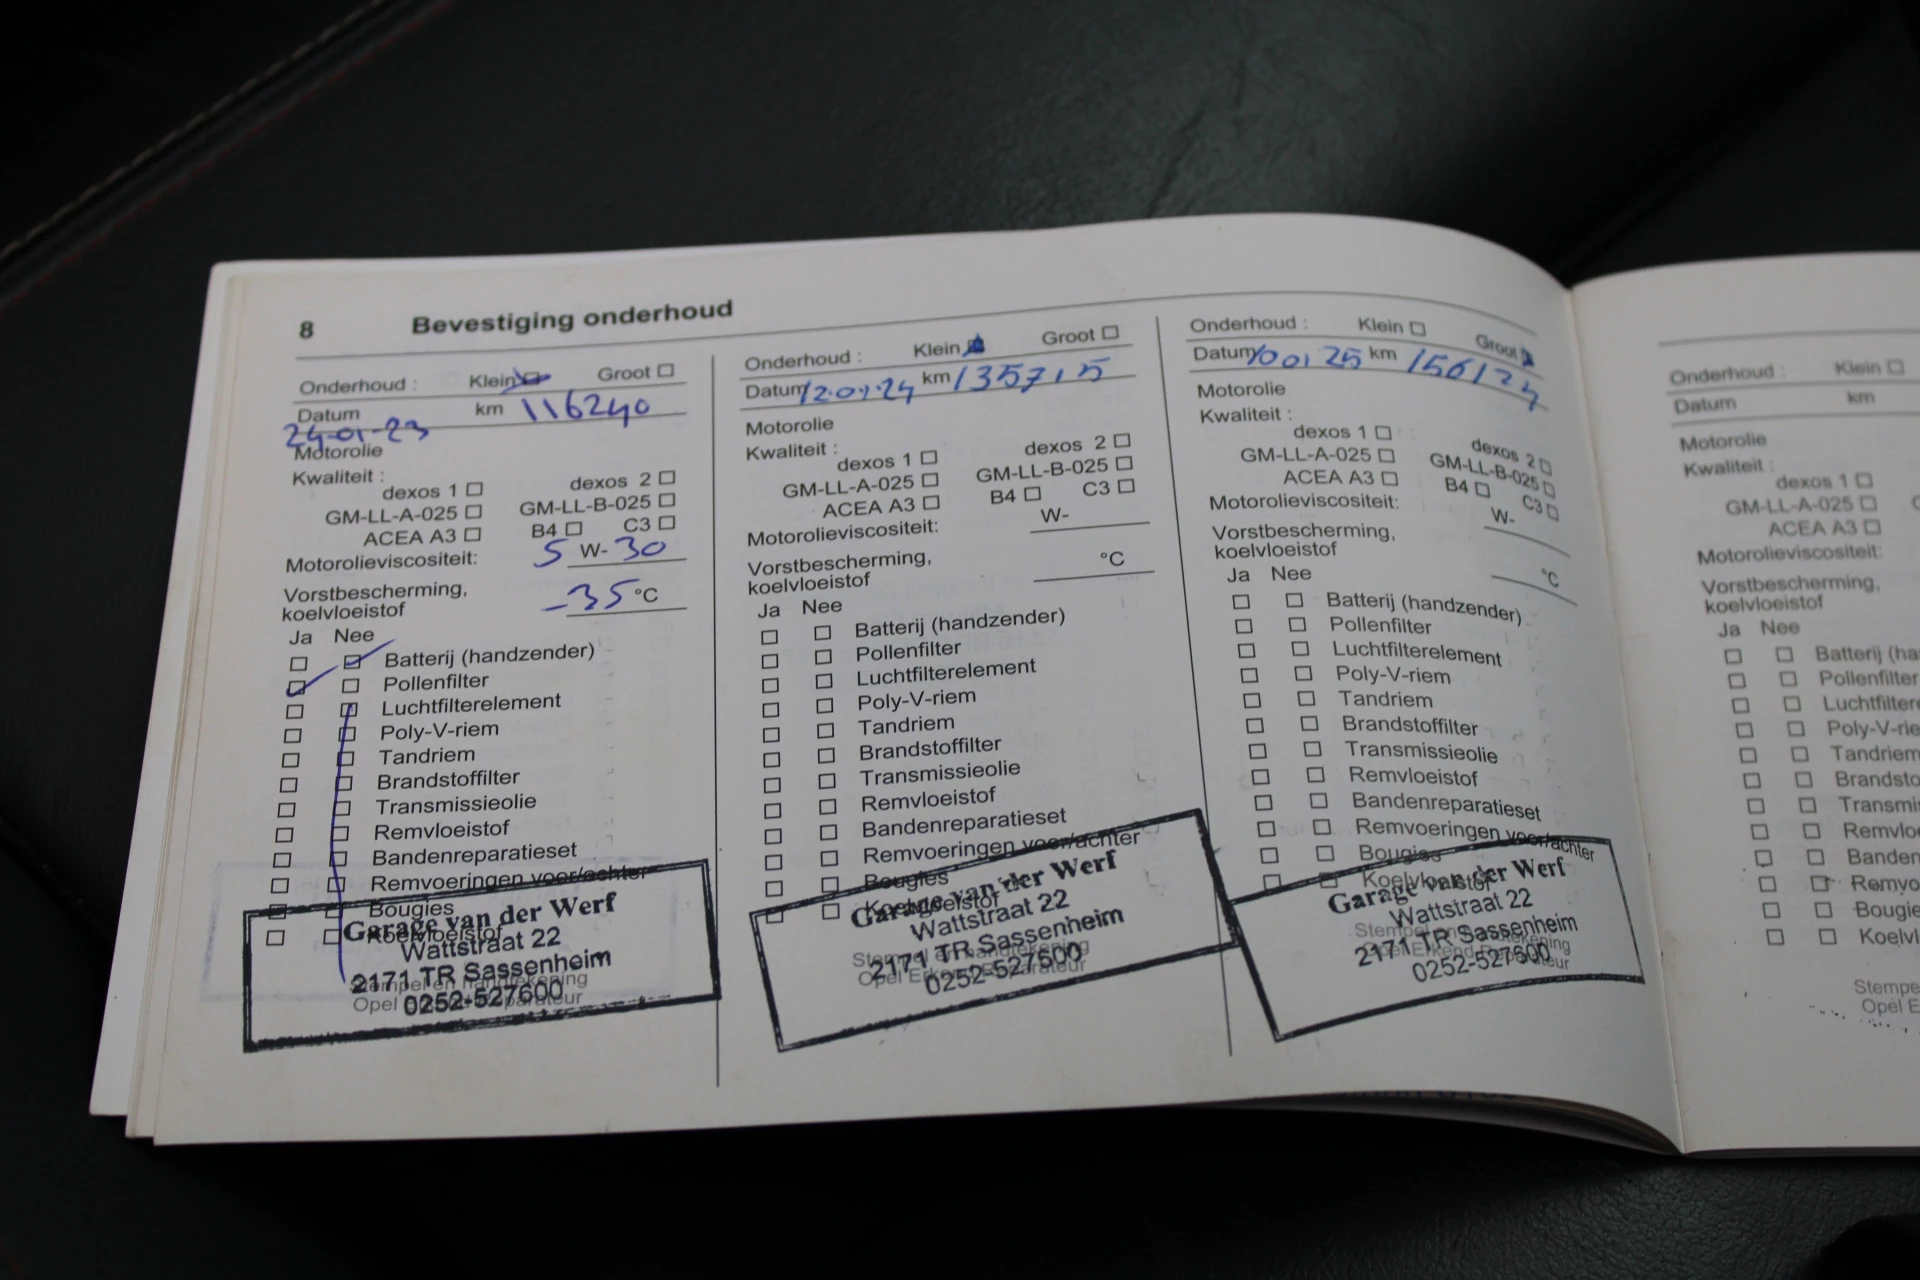 8 Bevestiging onderhoud
Onderhoud : Klein Groot
Datum km 116240
24-01-23
Motorolie
Kwaliteit :
dexos 1 dexos 2
GM-LL-A-025 GM-LL-B-025
ACEA A3 B4 C3
Motorolieviscositeit: 5 W- 30
Vorstbescherming,
koelvloeistof -35 °C
Ja Nee
Batterij (handzender)
Pollenfilter
Luchtfilterelement
Poly-V-riem
Tandriem
Brandstoffilter
Transmissieolie
Remvloeistof
Bandenreparatieset
Remvoeringen voor/achter
Bougies
Koelvloeistof
Garage van der Werf
Wattstraat 22
2171 TR Sassenheim
0252-527600
Stempel en handtekening
Opel Erkend Reparateur
Onderhoud : Klein Groot
Datum 12-01-24 km 135715
Motorolie
Kwaliteit :
dexos 1 dexos 2
GM-LL-A-025 GM-LL-B-025
ACEA A3 B4 C3
Motorolieviscositeit: W-
Vorstbescherming,
koelvloeistof °C
Ja Nee
Batterij (handzender)
Pollenfilter
Luchtfilterelement
Poly-V-riem
Tandriem
Brandstoffilter
Transmissieolie
Remvloeistof
Bandenreparatieset
Remvoeringen voor/achter
Bougies
Koelvloeistof
Garage van der Werf
Wattstraat 22
2171 TR Sassenheim
0252-527600
Stempel en handtekening
Opel Erkend Reparateur
Onderhoud : Klein Groot
Datum 10 01 25 km 156124
Motorolie
Kwaliteit :
dexos 1 dexos 2
GM-LL-A-025 GM-LL-B-025
ACEA A3 B4 C3
Motorolieviscositeit: W-
Vorstbescherming,
koelvloeistof °C
Ja Nee
Batterij (handzender)
Pollenfilter
Luchtfilterelement
Poly-V-riem
Tandriem
Brandstoffilter
Transmissieolie
Remvloeistof
Bandenreparatieset
Remvoeringen voor/achter
Bougies
Koelvloeistof
Garage van der Werf
Wattstraat 22
2171 TR Sassenheim
0252-527600
Stempel en handtekening
Opel Erkend Reparateur
Onderhoud : Klein
Datum km
Motorolie
Kwaliteit :
dexos 1
GM-LL-A-025
ACEA A3
Motorolieviscositeit:
Vorstbescherming,
koelvloeistof
Ja Nee
Batterij (ha
Pollenfilter
Luchtfiltere
Poly-V-rie
Tandriem
Brandsto
Transmis
Remvloe
Banden
Remvo
Bougie
Koelvl
Stempe
Opel E